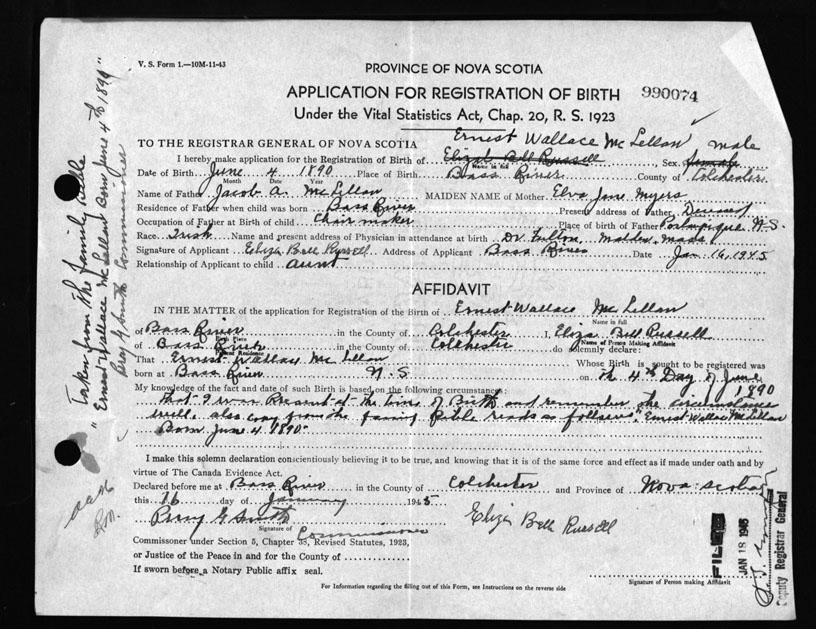 V. S. Form 1.—10M-11-43
PROVINCE OF NOVA SCOTIA
APPLICATION FOR REGISTRATION OF BIRTH 990074
Under the Vital Statistics Act, Chap. 20, R. S. 1923
Ernest Wallace Mc Lellan male
TO THE REGISTRAR GENERAL OF NOVA SCOTIA
I hereby make application for the Registration of Birth of Eliza Bell Russell, Sex female
Name in full
Date of Birth June 4 1890 Place of Birth Bass River County of Colchester
Month Date Year
Name of Father Jacob A. McLellan MAIDEN NAME of Mother Elva Jane Myers
Residence of Father when child was born Bass River Present address of Father Deceased
Occupation of Father at Birth of child Chair maker Place of birth of Father Portapique N-S.
Race Irish Name and present address of Physician in attendance at birth Dr Fulton, Malden, Mass
Signature of Applicant Eliza Bell Russell Address of Applicant Bass River Date Jan 16, 1945
Relationship of Applicant to child aunt
AFFIDAVIT
IN THE MATTER of the application for Registration of the Birth of Ernest Wallace Mc Lellan
Name in full
of Bass River in the County of Colchester I, Eliza Bell Russell
Birth Place Name of Person Making Affidavit
of Bass River in the County of Colchester do solemnly declare:
Present Residence
That Ernest Wallace Mc Lellan Whose Birth is sought to be registered was
born at Bass River N-S on the 4th Day of June
My knowledge of the fact and date of such Birth is based on the following circumstance: 1890
That I was Present at the time of Birth and remember the circumstance
well also copy from the family Bible reads as follows "Ernest Wallace McLellan
Born June 4 1890"
I make this solemn declaration conscientiously believing it to be true, and knowing that it is of the same force and effect as if made under oath and by
virtue of The Canada Evidence Act.
Declared before me at Bass River in the County of Colchester and Province of Nova Scotia
this 16 day of January 1945
Percy G Smith Eliza Bell Russell
Signature of Commissioner
Commissioner under Section 5, Chapter 38, Revised Statutes, 1923,
or Justice of the Peace in and for the County of
If sworn before a Notary Public affix seal.
Signature of Person making Affidavit
For Information regarding the filling out of this Form, see Instructions on the reverse side
Taken from the family Bible
"Ernest Wallace McLellan Born June 4th 1890"
Percy G Smith Commissioner
FILED
JAN 18 1945
Deputy Registrar General